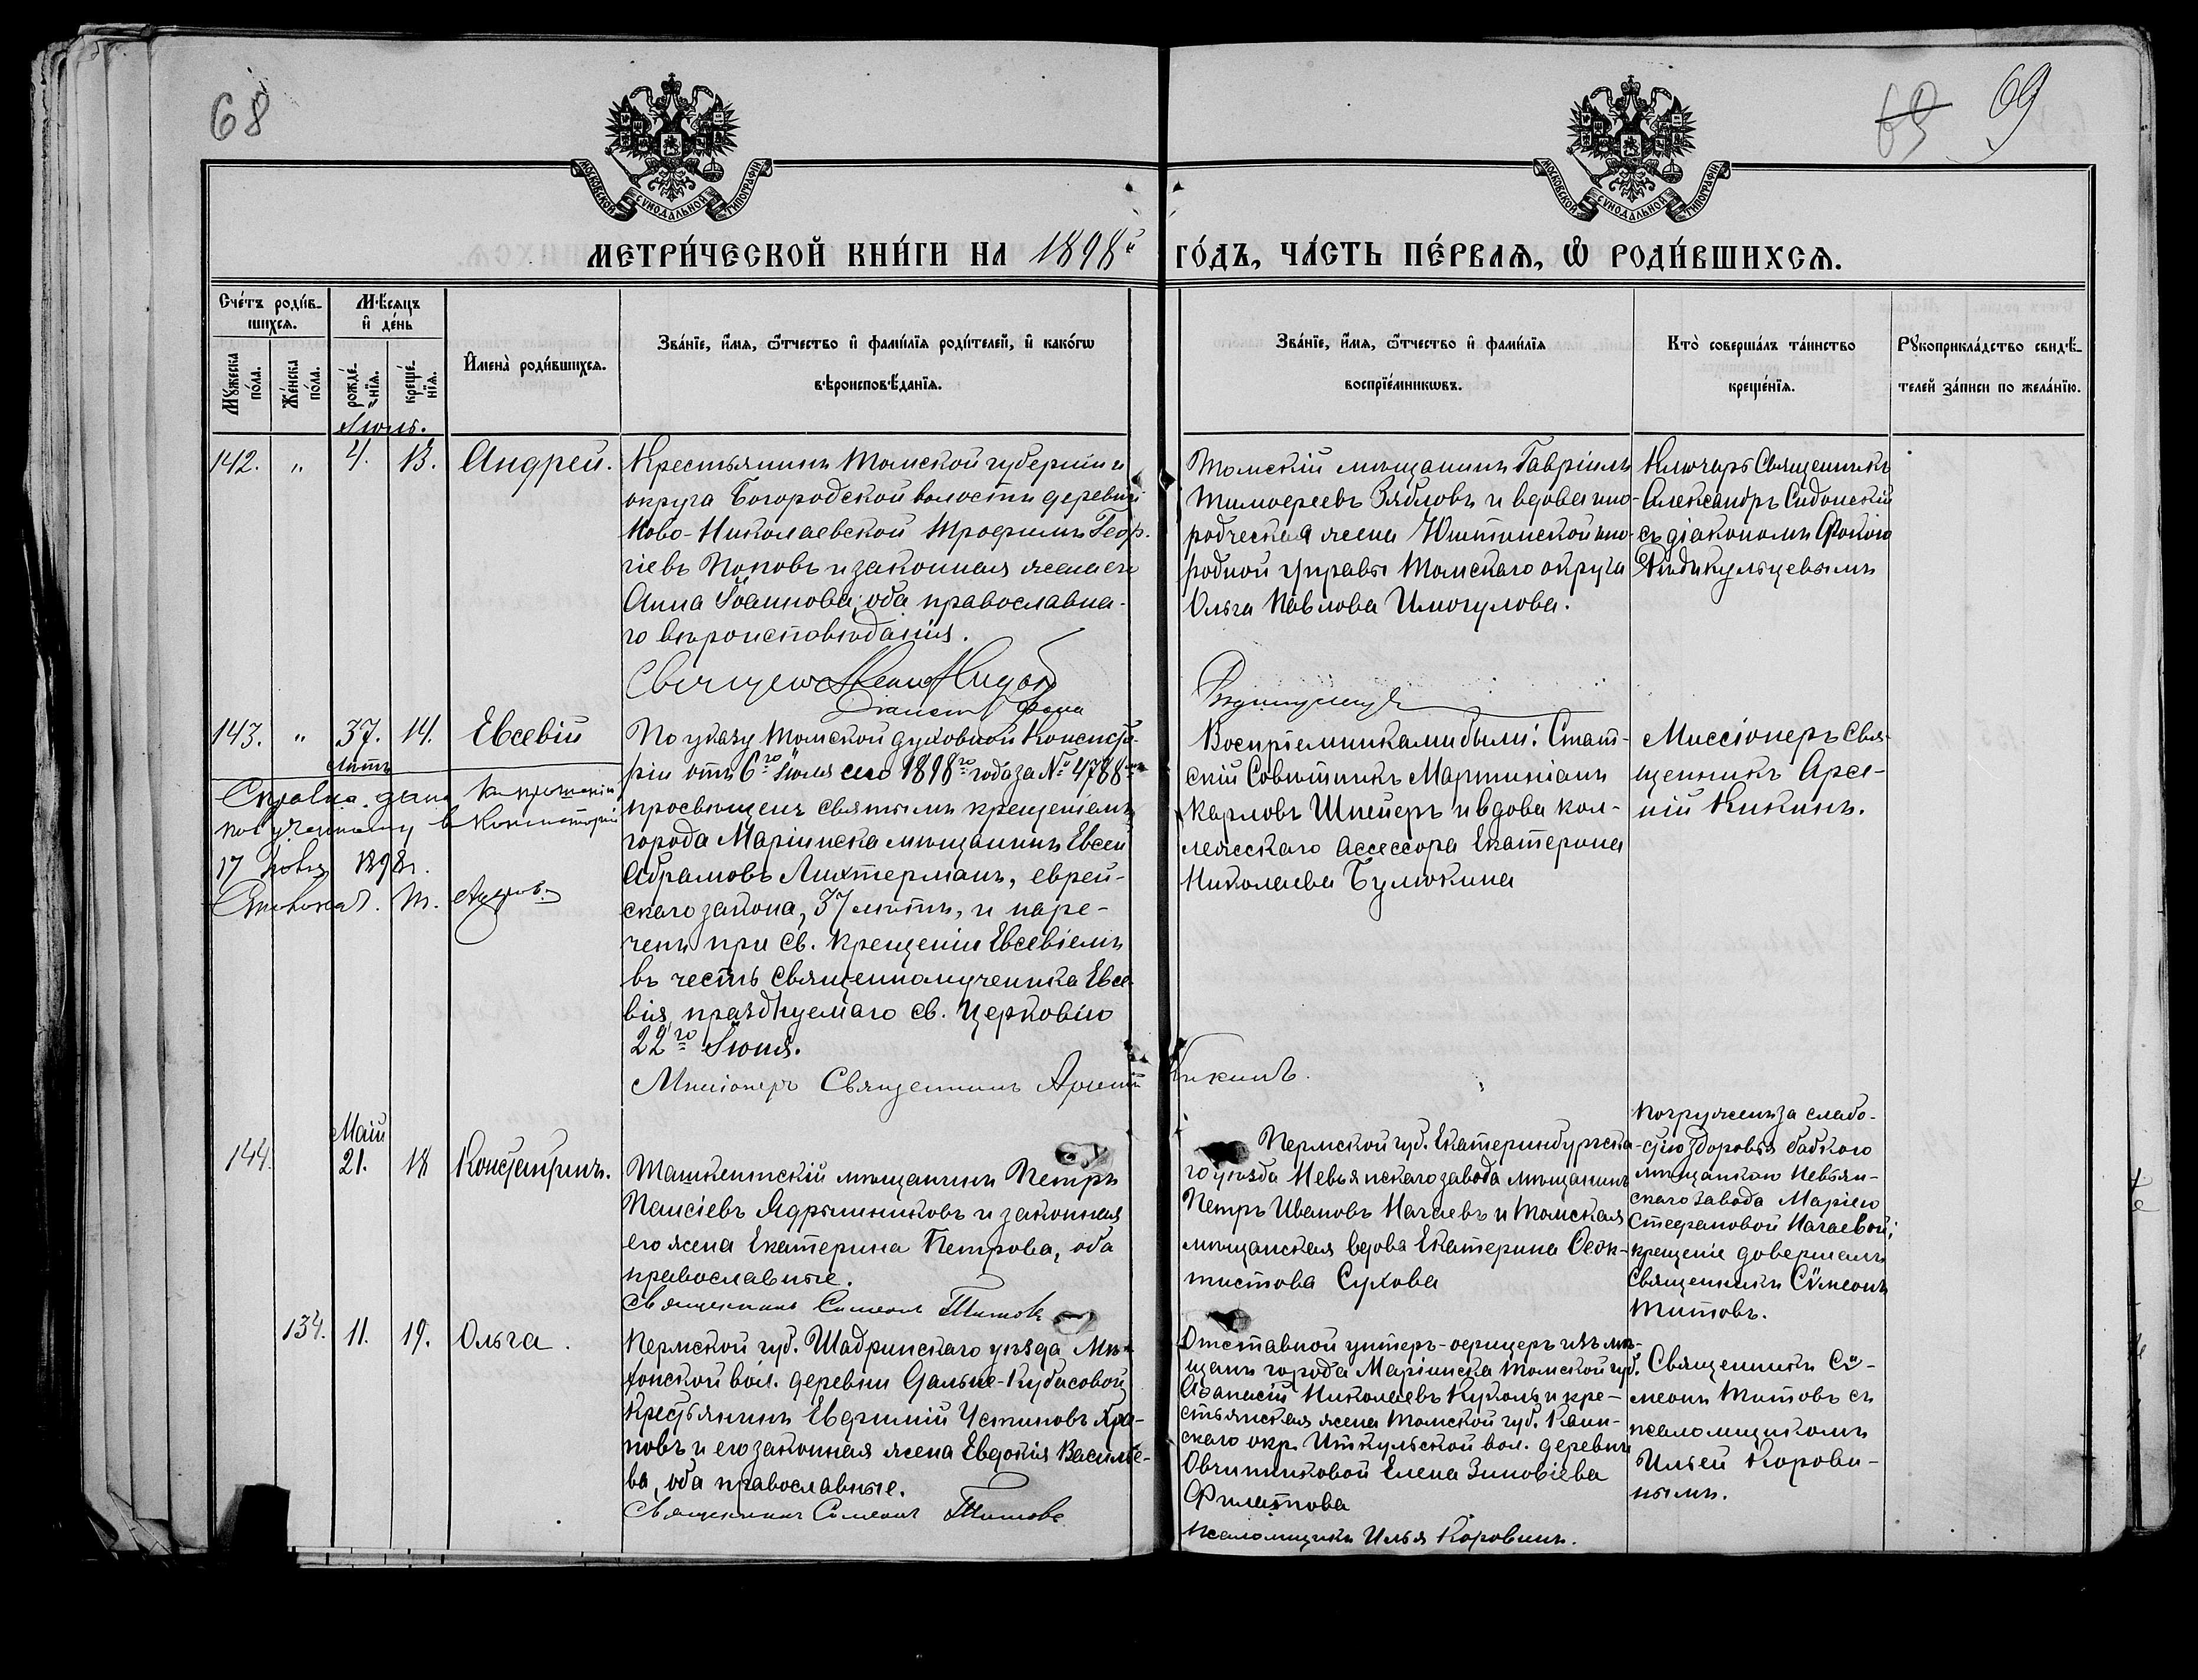 68
69 69
МОСКОВСКОЙ СѴНОДАЛЬНОЙ ТИПОГРАФІИ
МОСКОВСКОЙ СѴНОДАЛЬНОЙ ТИПОГРАФІИ
МЕТРИ́ЧЕСКОЙ КНИ́ГИ НА 1898й ГО́ДЪ, ЧА́СТЬ ПЕ́РВАѦ, Ѡ҆ РОДИ́ВШИХСѦ.
Сче́тъ роди́в-
шихсѧ.
Мꙋ́жеска
по́ла.
Же́нска
по́ла.
Мѣ́сѧцъ
и҆ де́нь
рожде́-
нїѧ.
креще́-
нїѧ.
И҆мена̀ роди́вшихсѧ.
Зва́нїе, и҆́мѧ, ѻ҆́тчество и҆ фами́лїѧ роди́телей, и҆ како́гѡ
вѣроисповѣ́данїѧ.
Зва́нїе, и҆́мѧ, ѻ҆́тчество и҆ фами́лїѧ
воспрїе́мникѡвъ.
Кто̀ соверша́лъ та́инство
креще́нїѧ.
Рꙋкоприкла́дство свидѣ́-
телей за́писи по жела́нїю.
Іюль.
142. „ 4. 13. Андрей.
Крестьянинъ Томской губерніи и
округа Богородской волости деревни
Ново-Николаевской Трофимъ Геор-
гіевъ Поповъ и законная жена его
Анна Іоаннова, оба православна-
го вѣроисповѣданія.
Томскій мѣщанинъ Гавріилъ
Тимофеевъ Зябловъ и вдова ино-
родческая жена Уштинской ино-
родной управы Томскаго округа
Ольга Павлова Имогулова.
Ключарь Священникъ
Александръ Сидонскій
съ діакономъ Фокою
Рыдикульцевымъ
143. „ 37. 14. Евсевій
лѣтъ
По указу Томской духовной Консисто-
ріи отъ 6го Іюля сего 1898го года за № 4788мъ
просвѣщенъ святымъ крещеніемъ
города Маріинска мѣщанинъ Евсей
Абрамовъ Лихтерманъ, еврей-
скаго закона, 37 лѣтъ, и наре-
ченъ при св. крещеніи Евсевіемъ
въ честь священномученика Евсе-
вія, празднуемаго св. Церковію
22го Іюня.
Миссіонеръ Священникъ Арсеній Кикинъ.
Справка дана
17 1898г.
Воспріемниками были: Стат-
скій Совѣтникъ Мартиніанъ
Карловъ Шнейеръ и вдова кол-
лежскаго ассессора Екатерина
Николаева Бумокина
Миссіонеръ Свя-
щенникъ Арсе-
ній Кикинъ.
Май
144. 21. 18 Константинъ.
Ташкентскій мѣщанинъ Петръ
Паисіевъ Ядрышниковъ и законная
его жена Екатерина Петрова, оба
православные.
Священникъ Симеонъ Титовъ
Пермской губ. Екатеринбургска-
го уѣзда Невьянскаго завода мѣщанинъ
Петръ Ивановъ Нагаевъ и Томская
мѣщанская вдова Екатерина Феок-
тистова Сухова
погруженъ за слабо-
стію здоровья бабкою
мѣщанкою Невьян-
скаго завода Маріею
Стефановой Нагаевой;
крещеніе довершалъ
священникъ Сѵмеонъ
Титовъ.
134. 11. 19. Ольга.
Пермской губ. Шадринскаго уѣзда Мѣ-
хонской вол. деревни Дальне-Кубасовой
крестьянинъ Евфимій Устиновъ Хра-
повъ и его законная жена Евдокія Василье-
ва, оба православные.
Священникъ Симеонъ Титовъ
Отставной унтеръ-офицеръ изъ мѣ-
щанъ города Маріинска Томской губ.
Афанасій Николаевъ Куколь и кре-
стьянская жена Томской губ. Каин-
скаго окр. Иткульской вол. деревни
Овчинниковой Елена Зиновіева
Филатова
Псаломщикъ Илья Коровинъ.
Священникъ Сѵ-
меонъ Титовъ съ
псаломщикомъ
Ильей Корови-
нымъ.